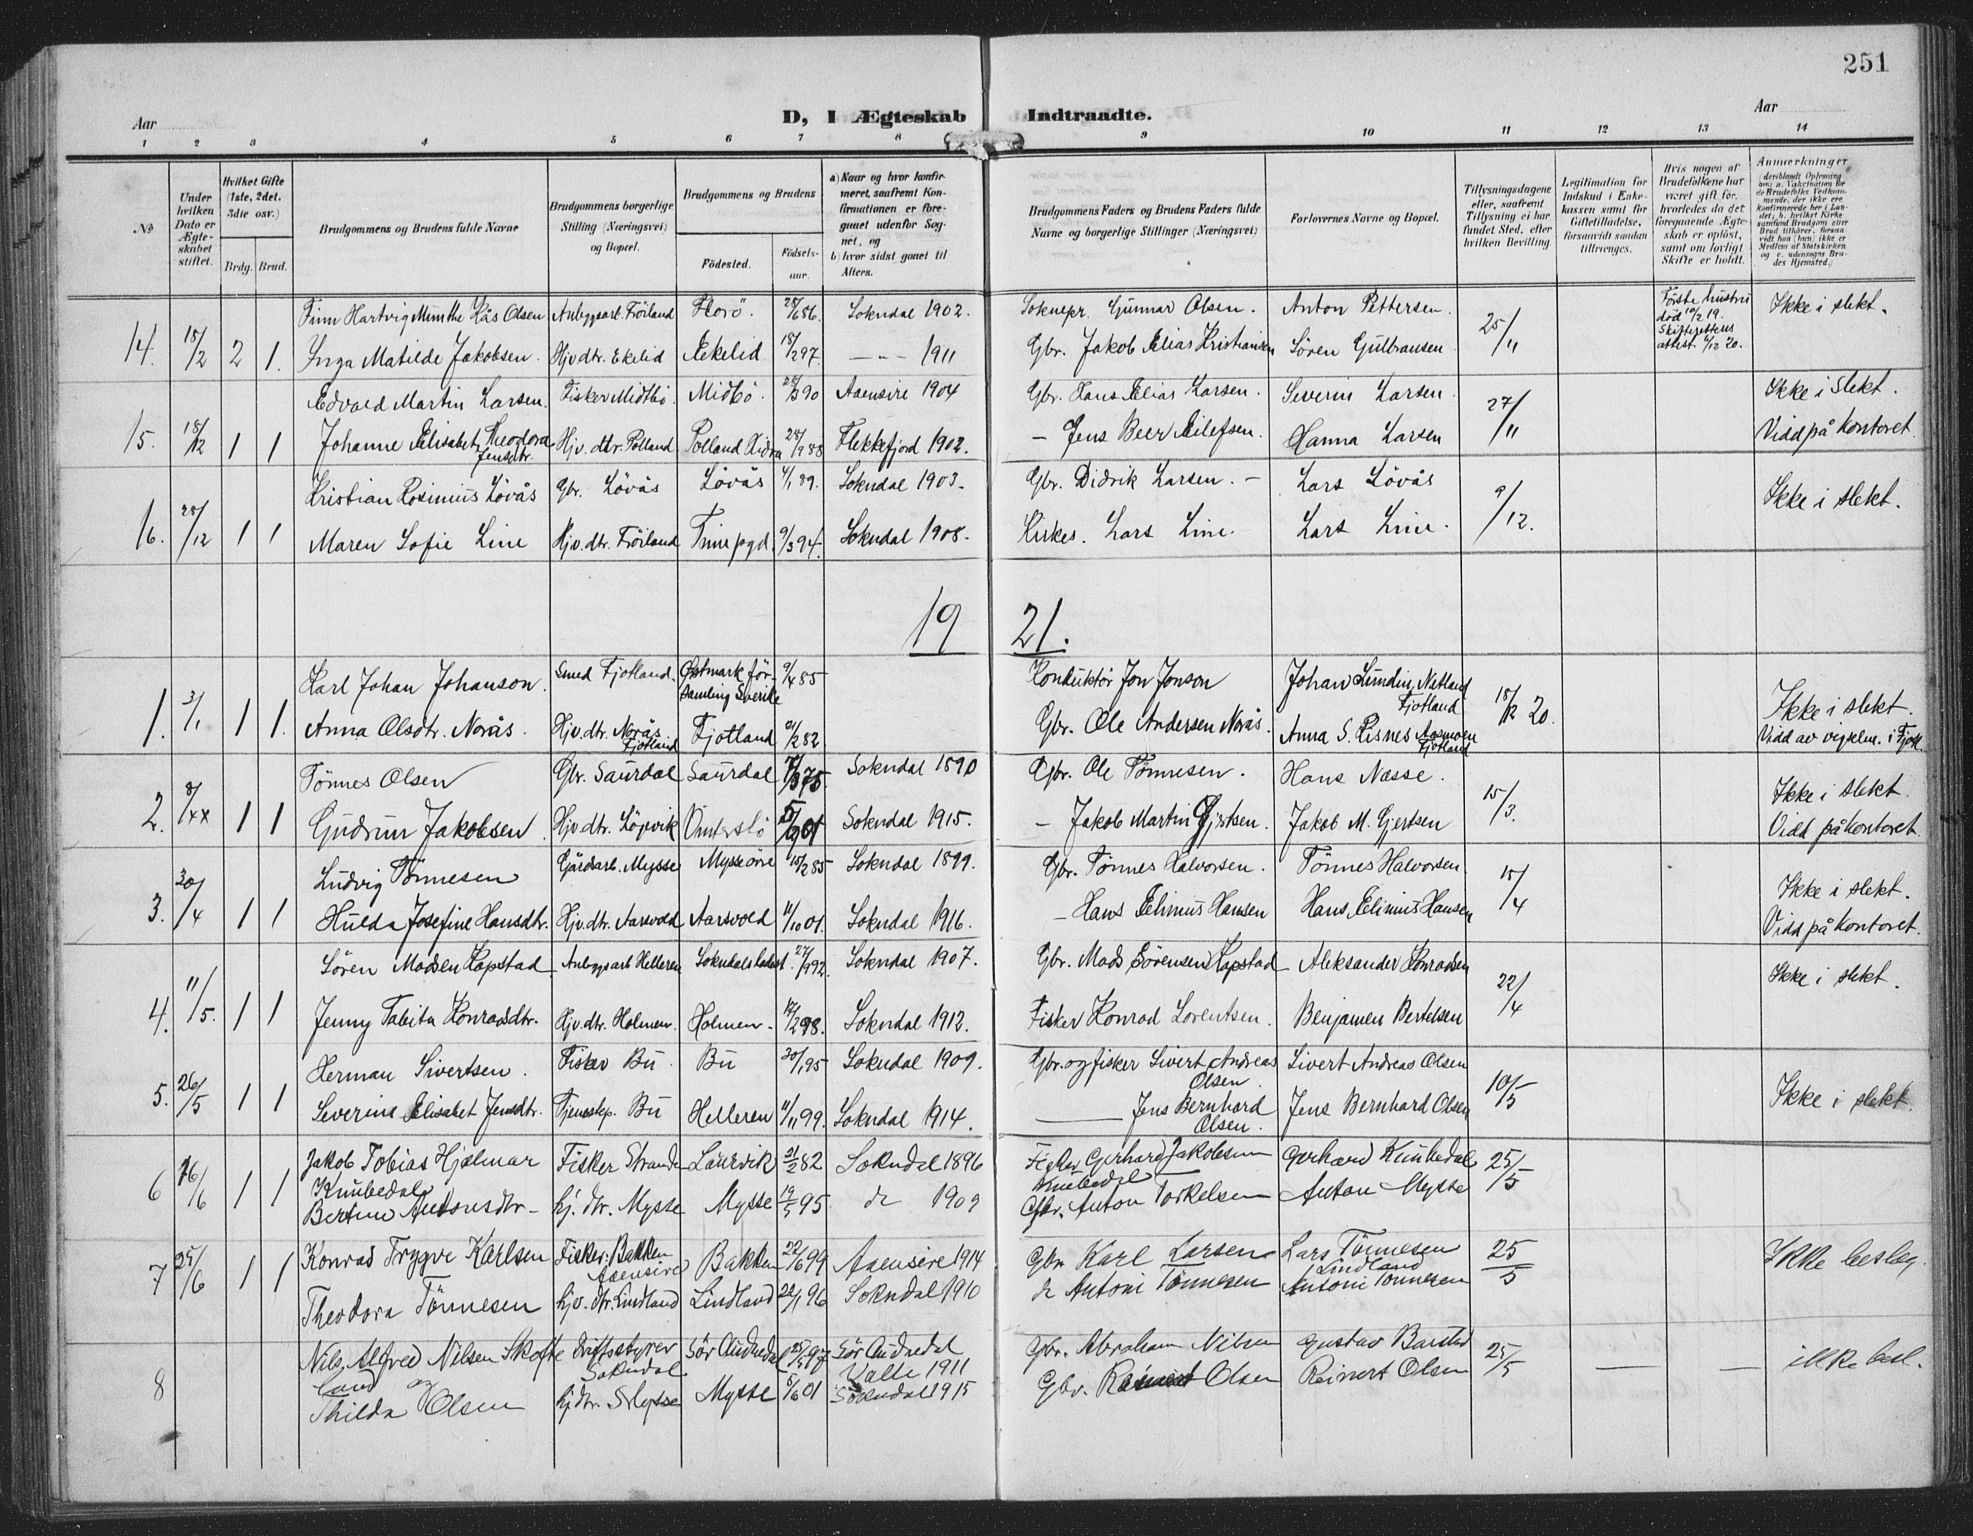 251
D, I Ægteskab Indtraadte.
Aar Aar
1 2 3 4 5 6 7 8 9 10 11 12 13 14
№
Under hvilken Dato er Ægteskabet stiftet.
Hvilket Gifte (1ste, 2det. 3die osv.)
Brdg. Brud.
Brudgommens og Brudens fulde Navne
Brudgommens borgerlige Stilling (Næringsvei) og Bopæl.
Brudgommens og Brudens
Födested. Födselsaar.
a) Naar og hvor konfirmeret, saafremt Konfirmationen er foregaaet udenfor Sognet, og
b) hvor sidst gaaet til Alters.
Brudgommens Faders og Brudens Faders fulde Navne og borgerlige Stillinger (Næringsvei)
Forlovernes Navne og Bopæl.
Tillysningsdagene eller, saafremt Tillysning ei har fundet Sted, efter hvilken Bevilling.
Legitimation for Indskud i Enkekassen samt for Giftetilladelse, forsaavidt saadan tiltrænges.
Hvis nogen af Brudefolkene har været gift för, hvorledes da det foregaaende Ægteskab er oplöst, samt om lovligt Skifte er holdt.
Anmerkninger
14. 18/12 2 1. Finn Hartvig Munthe Kås Olsen Anleggsarb. Fröiland Florö. 28/6 86. Sokndal 1902. Soknepr. Gunnar Olsen. Anton Pettersen. 25/11 Første hustru död 10/2 19. Skifterettens attest 6/12 20. Ikke i slekt.
Inga Matilde Jakobsen. Hjv. dtr. Ekelid Ekelid 18/2 97. — " — 1911 Gbr. Jakob Elias Kristiansen Sören Gulbransen
15. 18/12 1 1 Edvald Martin Larsen. Fisker Midtbö. Midbö. 28/3 90 Aaensire 1904 Gbr. Hans Elias Larsen. Severin Larsen. 27/11 Ikke i slekt.
Johanne Elisabet Theodora Jensdtr. Hjv. dtr. Polland Polland Hidra 28/9 88 Flekkefjord 1902. — Jens Beer Eilefsen. Hanna Larsen Vidd på kontoret.
16. 28/12 1 1 Kristian Rosinius Lövås Gbr. Lövås Lövås 4/1 89. Sokndal 1903. Gbr. Didrik Larsen. — Lars Lövås 9/12. Ikke i slekt.
Maren Sofie Line Hjv. dtr. Fröiland 9/3 94. Sokndal 1908. Kirkes. Lars Line. Lars Line.
19 21.
1. 3/1 1 1. Karl Johan Johanson. Smed Fjotland. Østmark församling Sverike 9/4 85 Konduktör Jon Jonson Johan Lundin, Natland Fjotland 18/12 20. Ikke i slekt.
Anna Olsdtr. Nerås. Hjv. dtr. Nerås Fjotland Fjotland 21/2 82 Gbr. Ole Andersen Nerås. Anna S. Risnes Aasmoen Fjotland Vidd av vigslm. i Fjotl.
2. 1 1 Tönnes Olsen Gbr. Saurdal Saurdal Sokndal 1890 Gbr. Ole Tönnesen. Hans Næsse. 15/3. Ikke i slekt.
Gudrun Jakobsen. Hjv. dtr. Löyvik Sokndal 1915. — Jakob Martin Gjertsen. Jakob M. Gjertsen Vidd på kontoret.
3. 30/4 1 1 Ludvig Tönnesen Gårdsarb. Mysse Mysse övre 15/2 85 Sokndal 1899. Gbr. Tönnes Halvorsen. Tönnes Halvorsen. 15/4 Ikke i slekt.
Hulda Josefine Hansdtr. Hjv. dtr. Aarsvold Aarsvold 11/10 01. Sokndal 1916. — Hans Elimius Hansen Hans Elimius Hansen Vidd på kontoret.
4. 11/5. 1 1 Sören Madsen Kapstad Anleggsarb Helleren Sokndalsladest. 27/9 92. Sokndal 1907. Gbr. Mads Sörensen Kapstad Aleksander Konradsen 22/4 Ikke i slekt.
Jenny Tabita Konradsdtr. Hjv. dtr. Holmen. Holmen. 12/2 98. Sokndal 1912. Fisker Konrad Lorentsen. Benjamen Bertelsen
5. 26/5 1 1 Herman Sivertsen. Fisker Bu. Bu 30/1 95 Sokndal 1909. Gbr. og fisker Sivert Andreas Olsen Sivert Andreas Olsen 10/5 Ikke i slekt.
Severine Elisabet Jensdtr. Tjenestep. Bu Helleren 11/11 99. Sokndal 1914. — Jens Bernhard Olsen. Jens Bernhard Olsen
6 16/6 1 1 Jakob Tobias Hjalmar Knubedal Fisker Strande Laurvik 21/2 82 Sokndal 1896 Fisker Gerhard Jakobsen Knubedal Gerhard Knubedal 25/5
Bertine Antonsdtr — hj. dtr. Mysse Mysse 19/5 95 do 1909 Gbr. Anton Torkelsen Anton Mysse
7 25/6 1 1 Konrad Trygve Karlsen Fisker Bakken Aaensire Bakken 22/6 99 Aaensire 1914 Gbr. Karl Larsen Lars Tönnesen Lindland 25/5 Ikke beslæg.
Theodora Tönnesen hjv. dtr. Lindland Lindland 22/1 96 Sokndal 1910 do Antoni Tönnesen Antoni Tönnesen
8 Nils Alfred Nilsen Skofteland og Driftsstyrer Sokndal Sör Audnedal Sör Audnedal Valle 1911 Gbr. Abraham Nilsen Gustav Barstad 25/5 — — ikke besl.
Thilda Olsen hjdtr. Mysse Mysse 5/6 01 Sokndal 1915 Gbr. Reinert Olsen Reinert Olsen